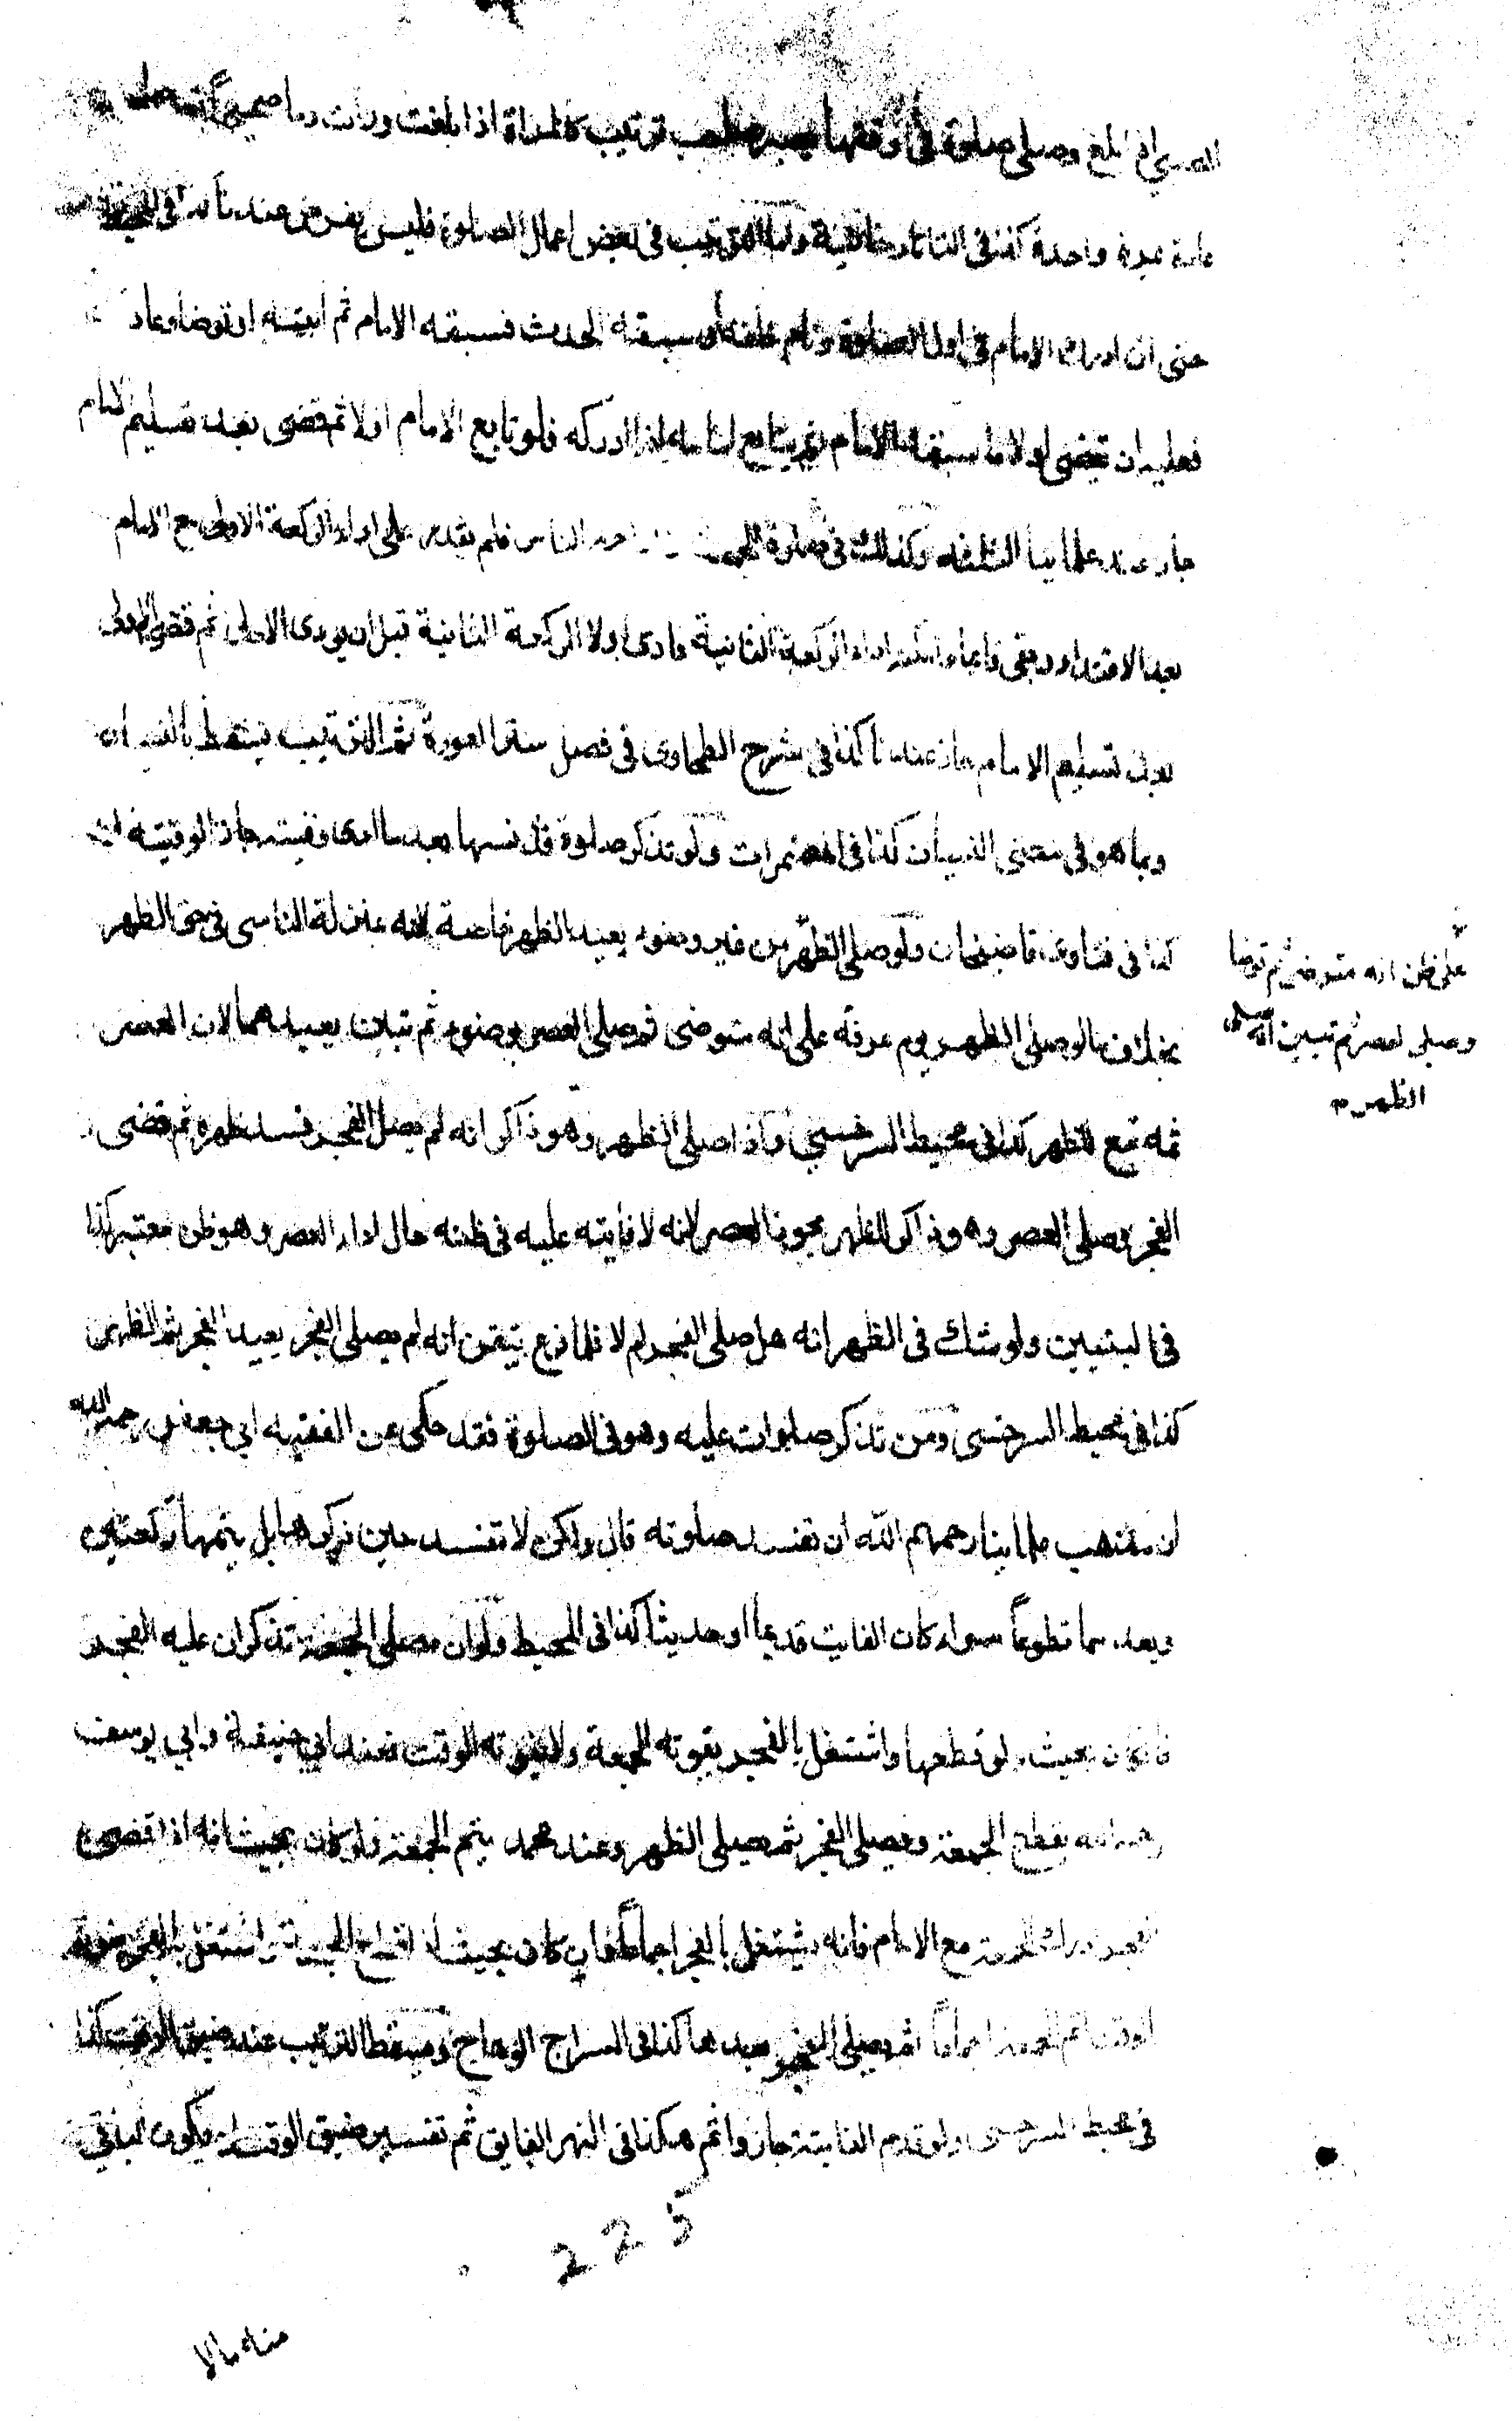 الصبي اذا بلغ وصلى صلوة في وقتها يصير صاحب ترتيب كالمراة اذا بلغت ورات دما صحيحا
عادة مرة واحدة كذا في التاتارخانية واما الترتيب في بعض اعمال الصلوة فليس بفرض عندنا
حتى ان ادرك الامام في اول الصلوة ونام خلفه او سبقه الحدث فسبقه الامام ثم انتبه او توضا وعاد
فعليه ان يقضي اولا ما سبقه الامام ثم يتابع امامه اذا ادركه فلو تابع الامام اولا ثم قضى بعد تسليم الامام
جاز عند علمائنا الثلثة وكذلك في صلوة الجمعة الناس فلم يقدر على اداء الركعة الاولى مع الامام
بعد الاقتداء وبقي قائما وامكنه اداء الركعة الثانية فادى اولا الركعة الثانية قبل ان يودي الاولى ثم قضى الاولى
بعد تسليم الامام جاز عندنا كذا في شرح الطحاوي في فصل ستر العورة ثم الترتيب يسقط بالنسيان
وبما هو في معنى النسيان كذا في المضمرات ولو تذكر صلوة قد نسيها بعد ما ادى وقتيته جاز الوقتية
كذا في فتاوى قاضيخان ولو صلى الظهر من غير وضوء يعيد الظهر خاصة لانه بمنزلة الناسي في حق الظهر
على ظن انه متوضي ثم توضا
وصلى العصر ثم تبين انه صلى
الظهر
بخلاف ما لو صلى الظهر يوم عرفة على انه متوضي ثم صلى العصر بوضوء ثم تبين يعيدهما لان العصر
ثمه تبع للظهر كذا في محيط السرخسي واذا صلى الظهر وهو ذاكر انه لم يصل الفجر فسد ظهره ثم قضى
الفجر وصلى العصر وهو ذاكر للظهر يجوز العصر لانه لا فايتة عليه في ظنه حال اداء العصر وهو ظن معتبر كذا
في التبيين ولو شك في الظهر انه هل صلى الفجر ام لا فلما فرغ تيقن انه لم يصلي الفجر يعيد الفجر ثم الظهر
كذا في محيط السرخسي ومن تذكر صلوات عليه وهو في الصلوة فقد حكى عن الفقيه ابي جعفر رحمه الله
ان مذهب علماينا رحمهم الله ان تفسد صلوته قال ولكن لا تفسد حين ذكرها بل يتمها ركعتين
ويعدهما تطوعا سواء كان الفايت قديما او حديثا كذا في المحيط ولو ان مصلي الجمعة تذكر ان عليه الفجر
فان كان بحيث لو قطعها واشتغل بالفجر يفوته الجمعة ولا يفوته الوقت فعند ابي حنيفة وابي يوسف
يقطع الجمعة ويصلي الفجر ثم يصلي الظهر وعند محمد يتم الجمعة ولو كان بحيث انه اذا قضى
الفجر ادرك الجمعة مع الامام فانه يشتغل بالفجر اجماعا فان كان بحيث اذا قطع الجمعة واشتغل بالفجر يفوته
الوقت اتم الجمعة اجماعا ثم يصلي الفجر بعدها كذا في السراج الوهاج ويسقط الترتيب عند ضيق الوقت كذا
في محيط السرخسي ولو قدم الفايتة جاز واثم هكذا في النهر الفايق ثم تفسير ضيق الوقت ان يكون الباقي
225
منه مالا